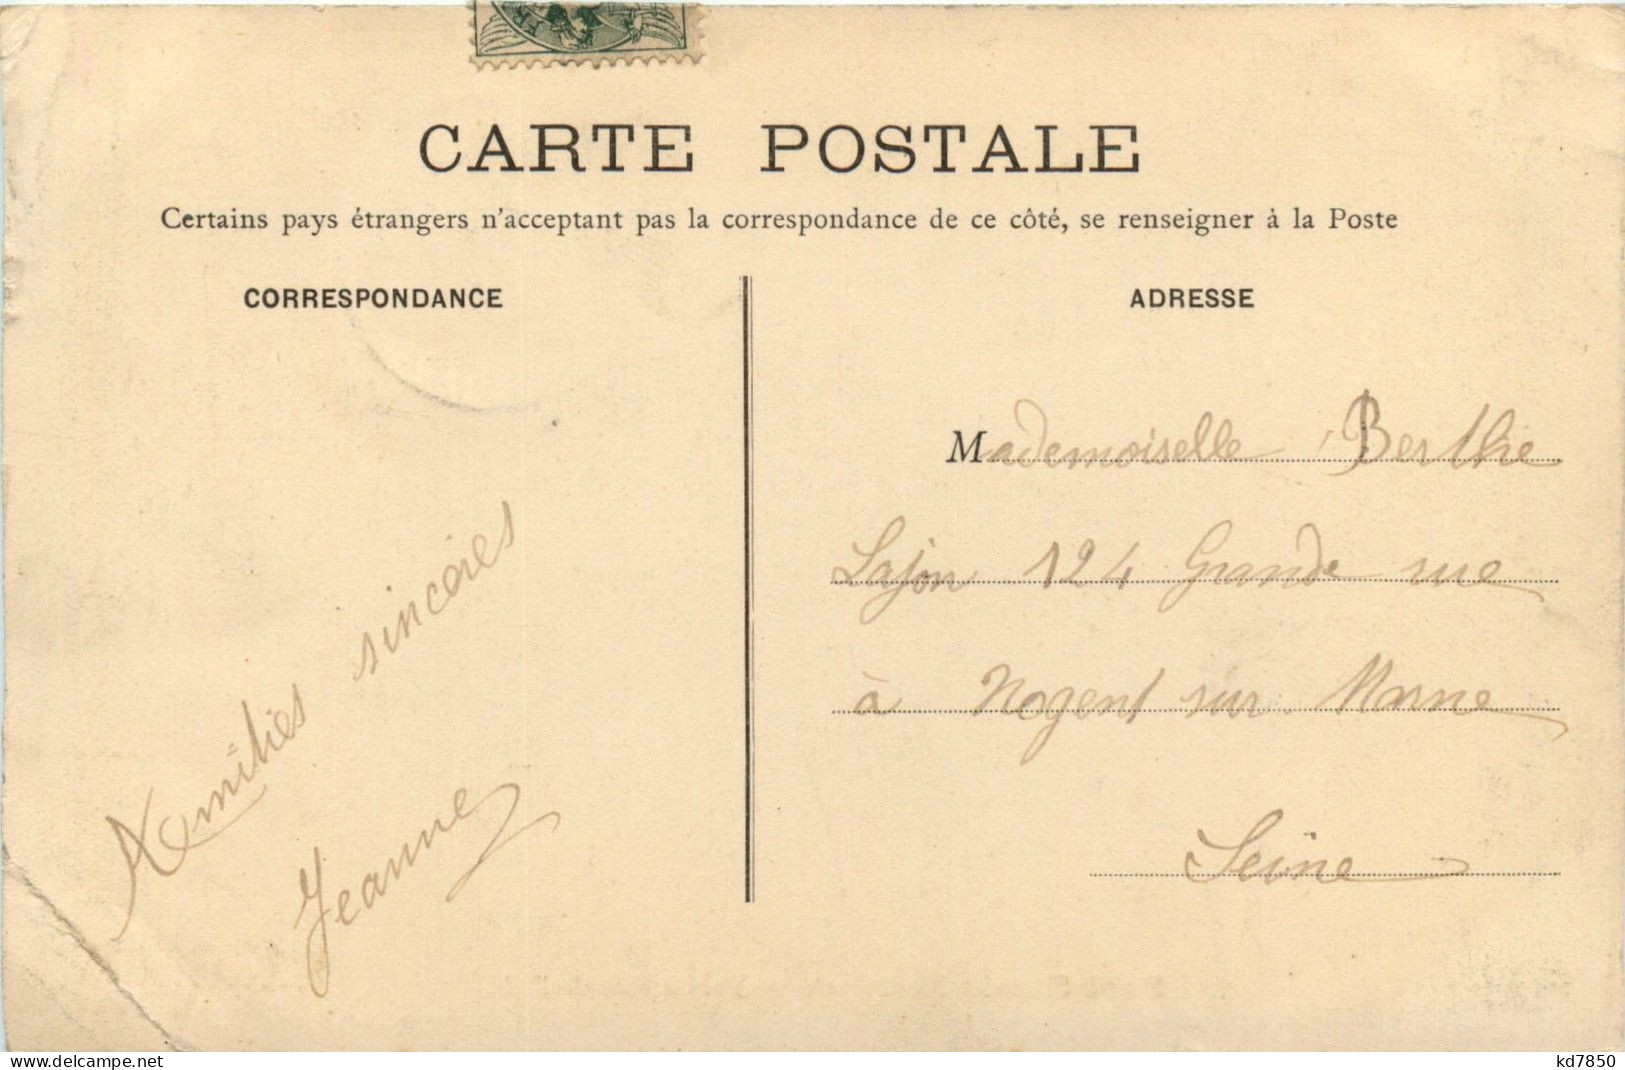 CARTE POSTALE
Certains pays étrangers n'acceptant pas la correspondance de ce côté, se renseigner à la Poste
CORRESPONDANCE
Amitiés sincères
Jeanne
ADRESSE
Mademoiselle Berthe
Lajon 124 Grande rue
à Nogent sur Marne
Seine
www.delcampe.net
kd7850